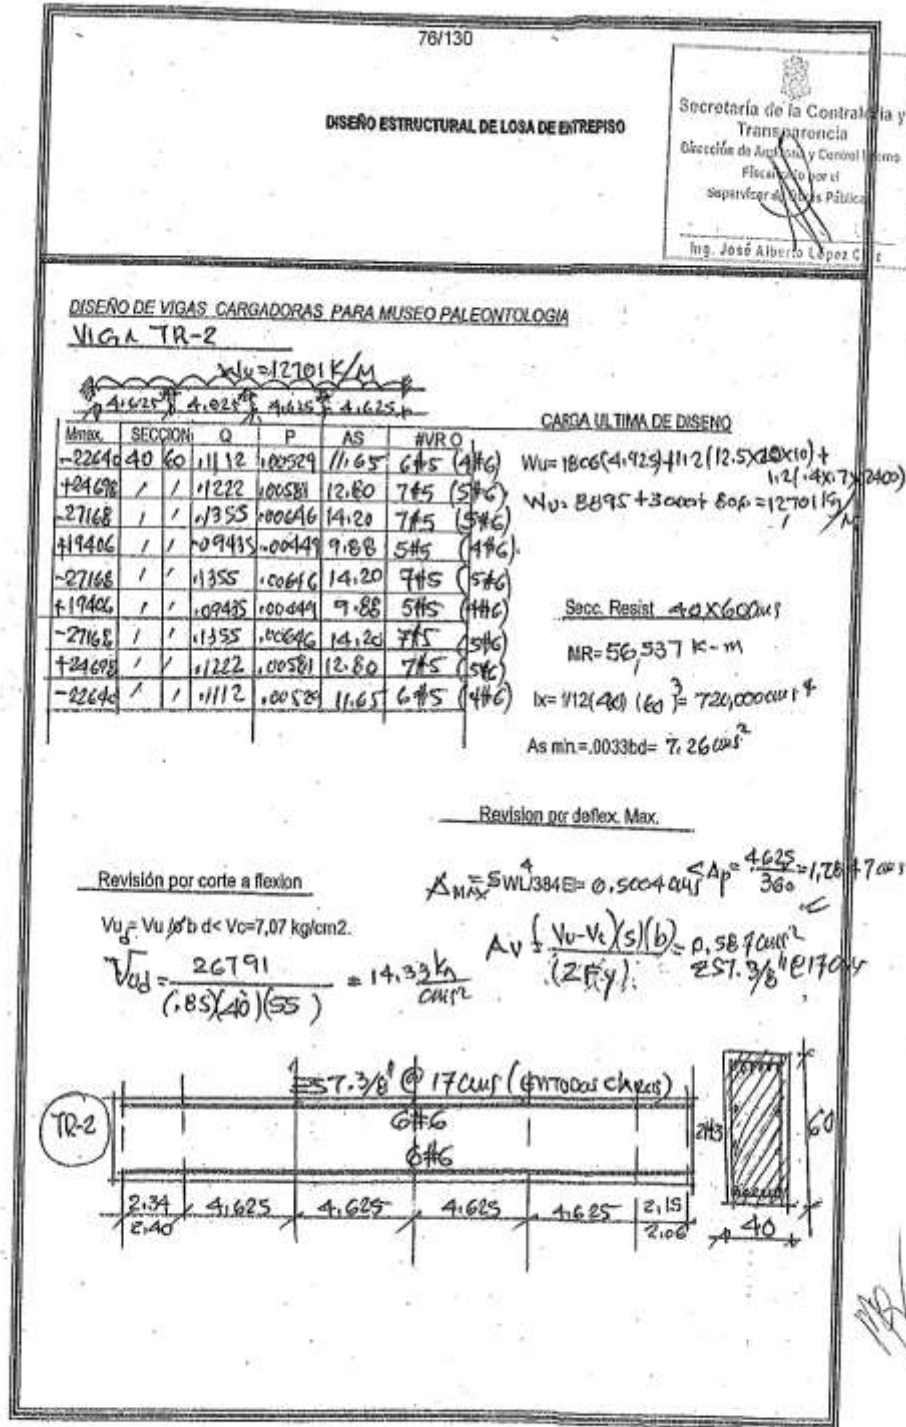 76/130
DISEÑO ESTRUCTURAL DE LOSA DE ENTREPISO
Secretaría de la Contraloría y
Transparencia
Dirección de Auditoría y Control Interno
Fiscalizado por el
Supervisor de Obras Pública
Ing. José Alberto López C
DISEÑO DE VIGAS CARGADORAS PARA MUSEO PALEONTOLOGIA
VIGA TR-2
Wu=12701 K/M
4.625 4.625 4.625 4.625
Mmax. SECCION Q P AS #VRO
-22640 40 60 .1112 .00529 11.65 6#5 (4#6)
+24698 / / .1222 .00581 12.80 7#5 (5#6)
-27168 / / .1355 .00646 14.20 7#5 (5#6)
+19406 / / .09435 .00449 9.88 5#5 (4#6)
-27168 / / .1355 .00646 14.20 7#5 (5#6)
+19406 / / .09435 .00449 9.88 5#5 (4#6)
-27168 / / .1355 .00646 14.20 7#5 (5#6)
+24698 / / .1222 .00581 12.80 7#5 (5#6)
-22640 / / .1112 .00529 11.65 6#5 (4#6)
CARGA ULTIMA DE DISENO
Wu= 1806(4.925)+1.2(12.5x20x10)+
1.2(.4x.7x2400)
Wu= 8895+3000+806=12701 Kg/M
Secc. Resist 40X60cms
MR=56,537 K-m
Ix= 1/12(40) (60)3= 720,000cms4
As min.=.0033bd= 7.26cms2
Revision por deflex. Max.
ΔMAX=5WL4/384EI= 0.5004cms<Δp=4.625/360=1.2847cms
Revisión por corte a flexion
Vu= Vu/øb d< Vc=7,07 kg/cm2.
Vud=26791/(.85)(40)(55) = 14.33kg/cms2
Av=(Vu-Vc)(s)(b)/(2Fy)= 0.587cms2
EST. 3/8"@17cms
EST. 3/8" @ 17cms (EN TODOS CLAROS)
TR-2
6#6
6#6
2#3
60
2.34 4.625 4.625 4.625 4.625 2.15
2.40 2.06
40